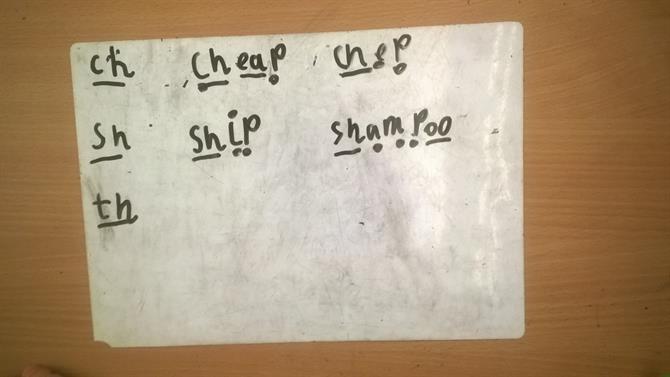 ch cheap
sh ship shampoo
th